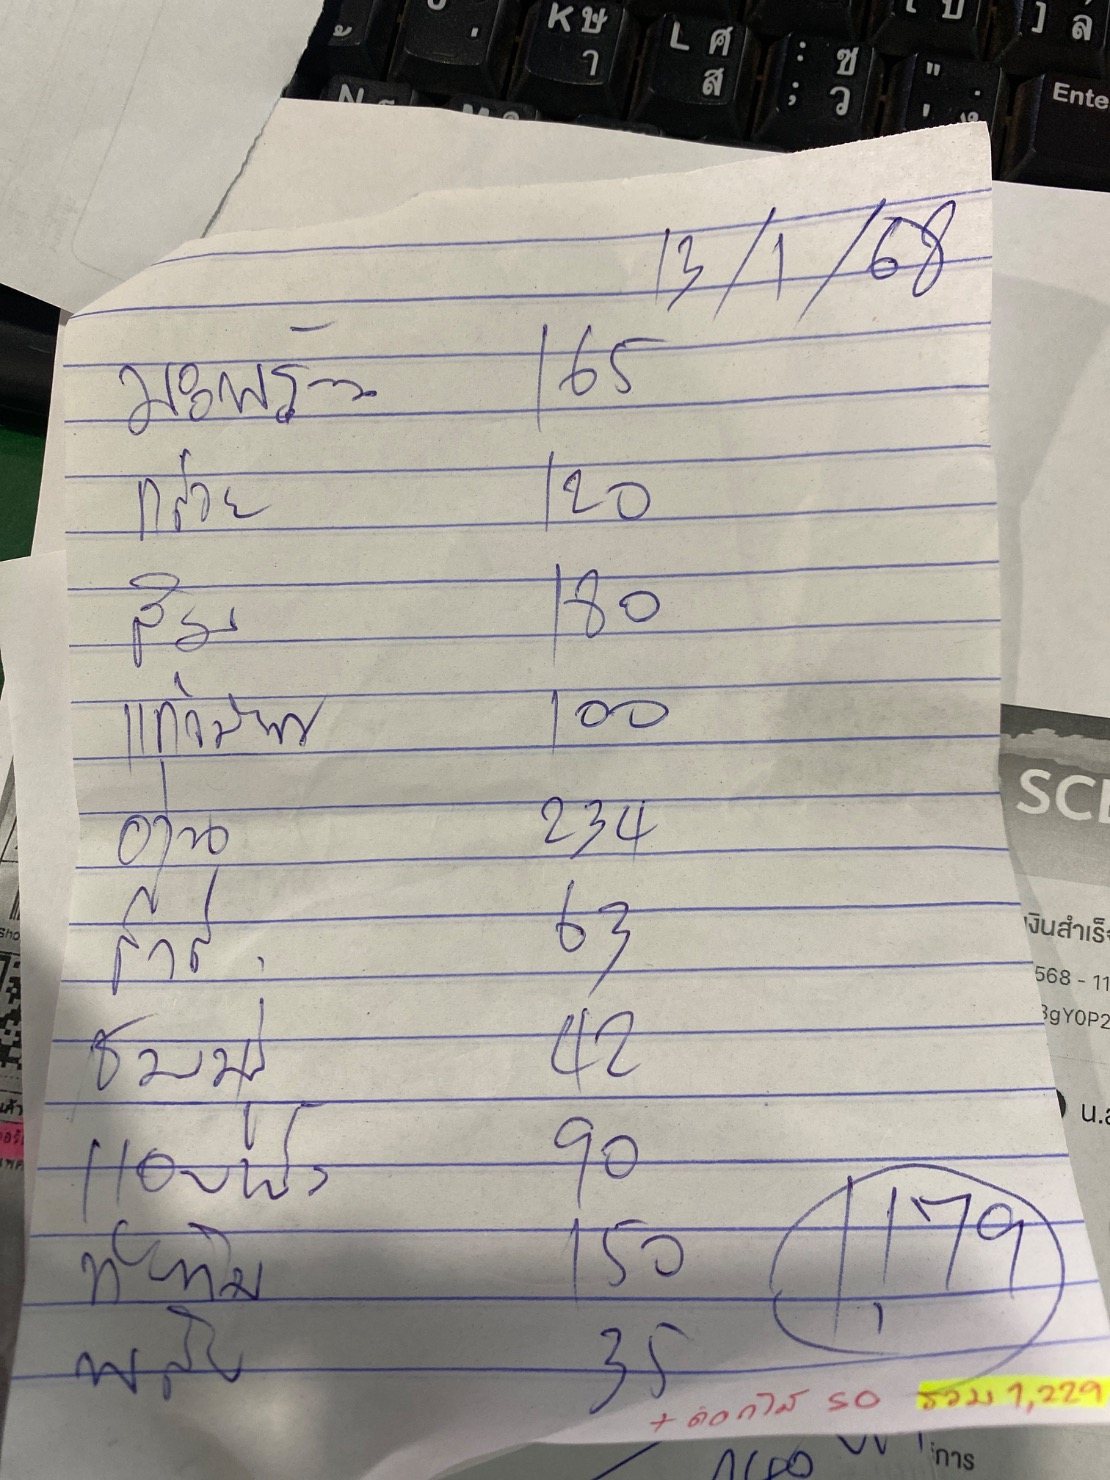 K ษ า
L ศ ส
: ซ ; ว
Enter
13/1/68
มะพร้าว 165
กล้วย 120
ส้ม 180
แก้วมังกร 100
องุ่น 234
สาลี่ 63
ชมพู่ 42
แอปเปิ้ล 90
ทับทิม 150
พลับ 35
1,179
+ ดอกไม้ 50 รวม 1,229
SCB
เงินสำเร็จ
568 - 11
3gY0P2
น.ส